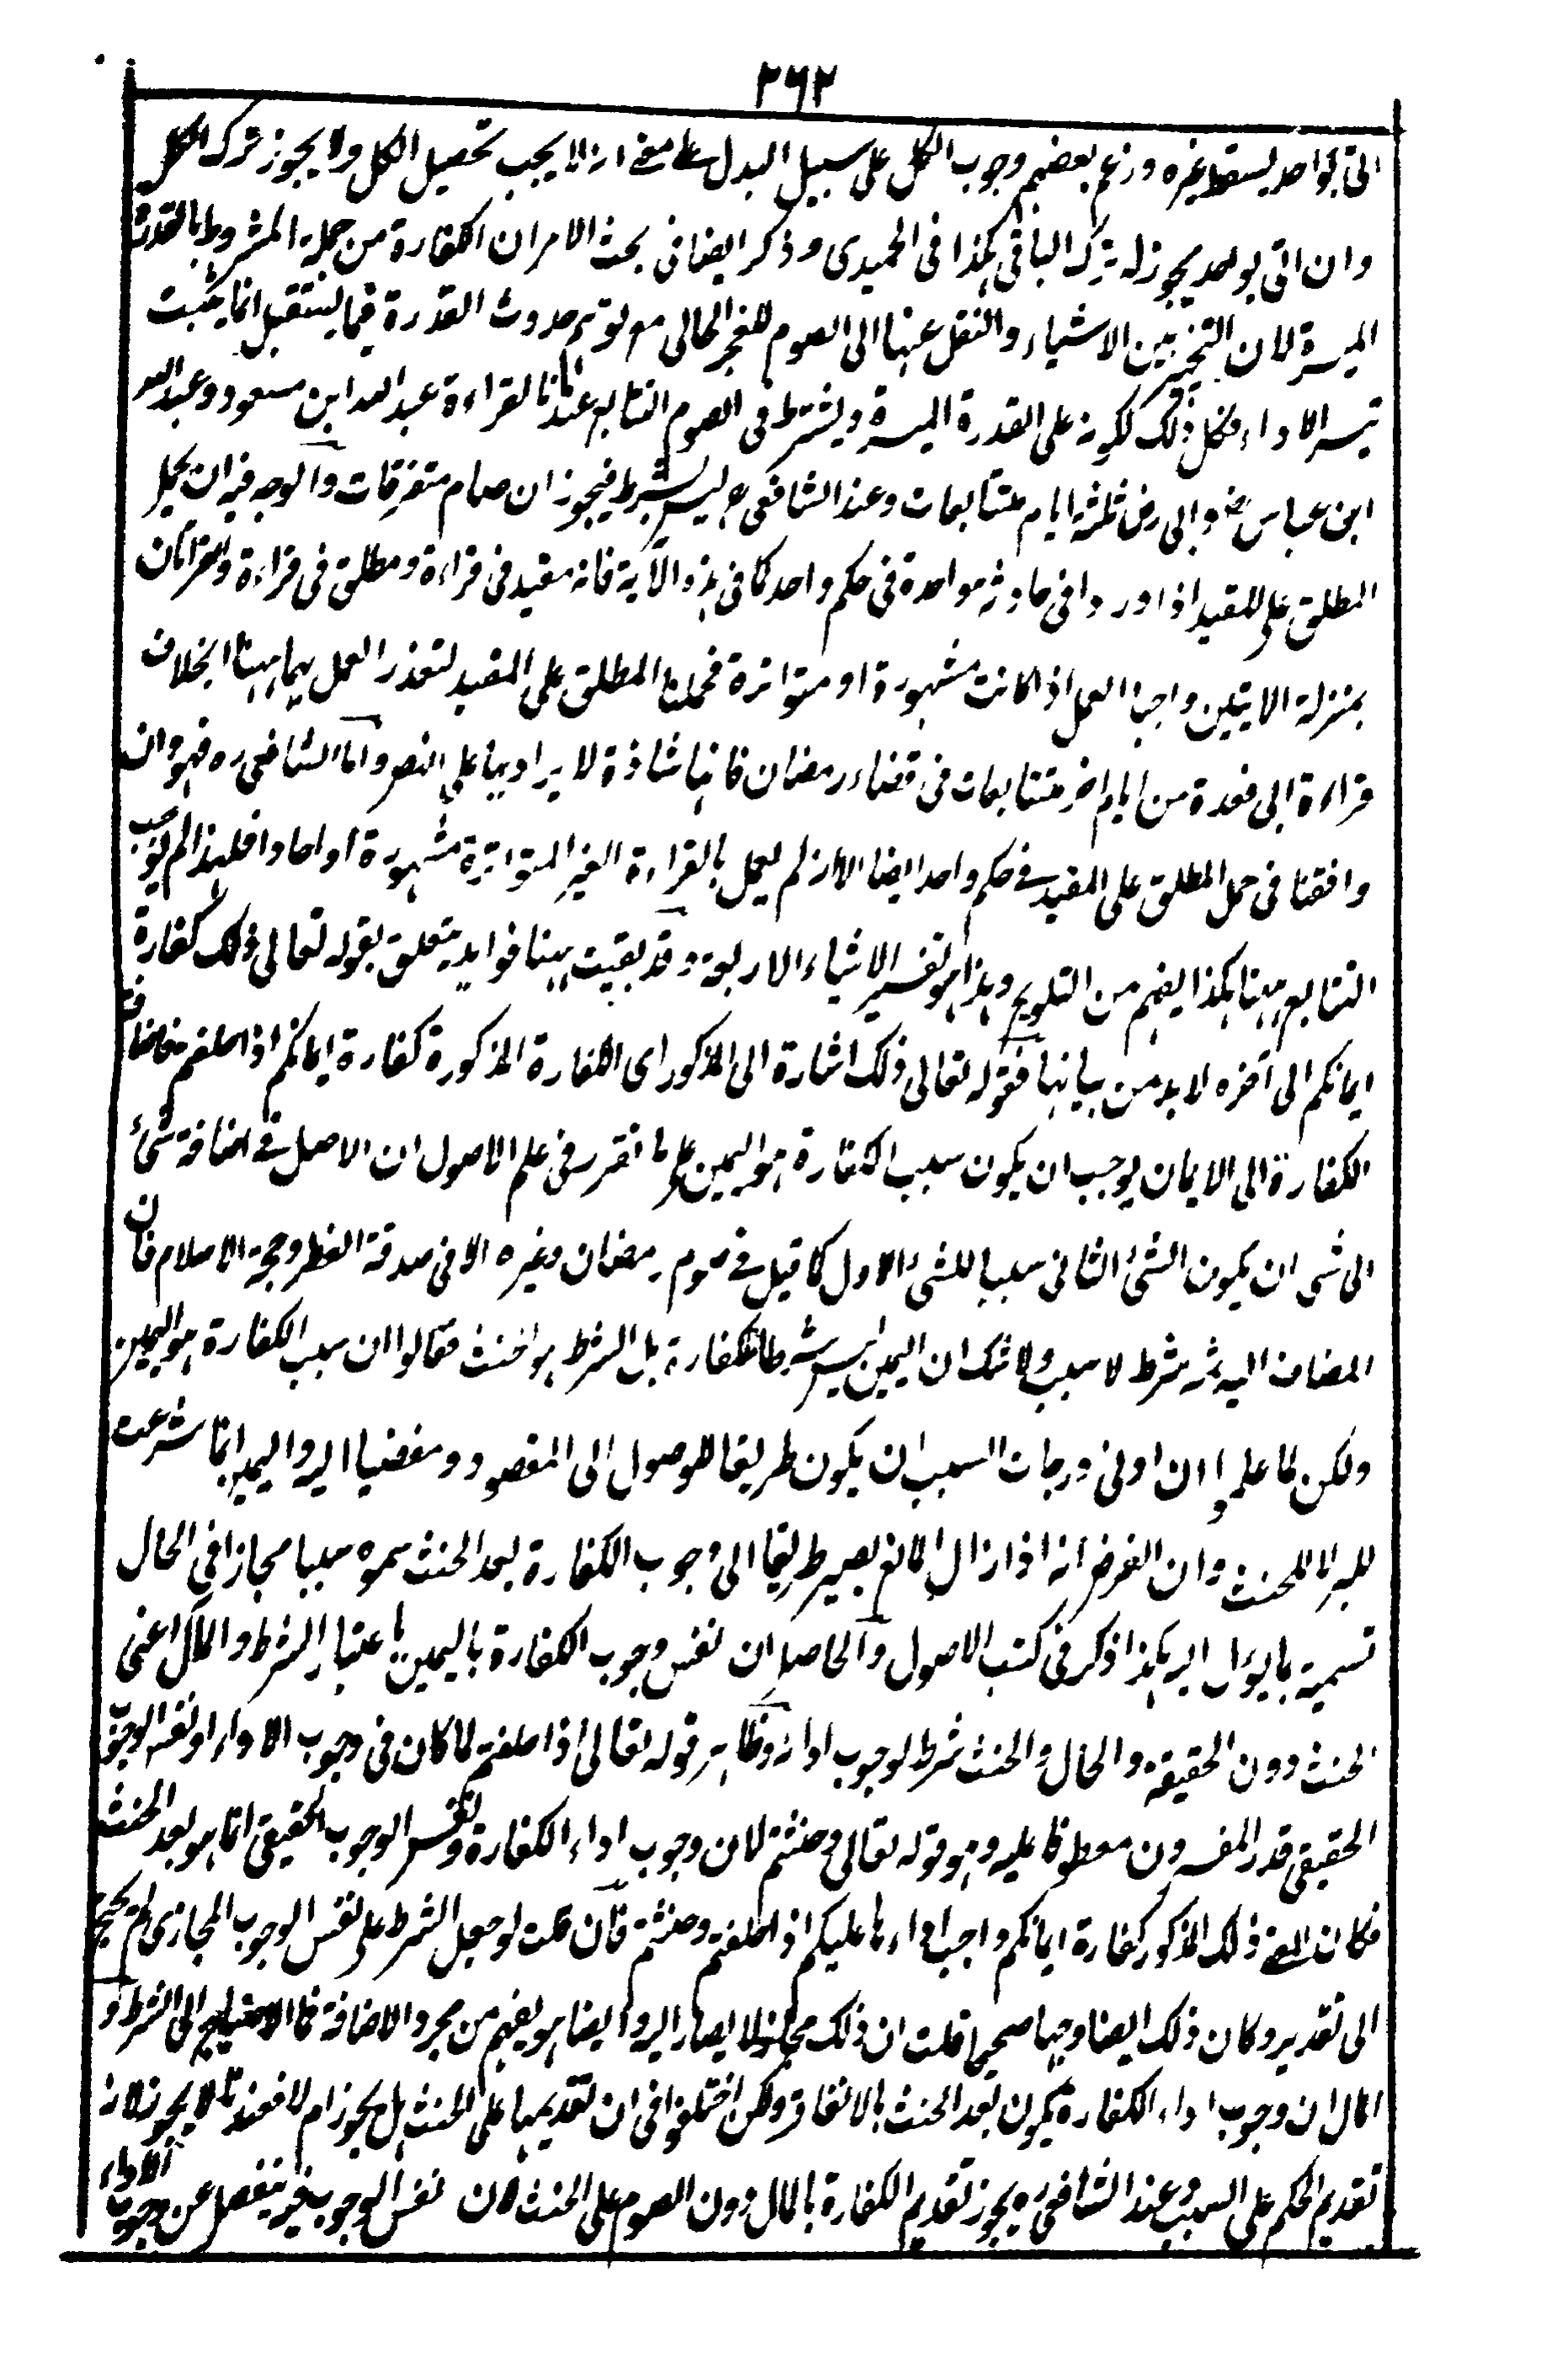 ٢٦٢
اتى بواحد يسقط غيره وزعم بعضهم وجوب الكل على سبيل البدل على معنى انه لا يجب تحصيل الكل ولا يجوز ترك الكل
وان اتى بواحد يجوز له ترك الباقى هكذا فى الحميدى وذكر ايضا فى بحث الامر ان الكفارة من جملة المشروط بالقدرة
الميسرة لان التخيير بين الاشياء والنقل عنها الى الصوم للعجز الحالى مع توهم حدوث القدرة فيما يستقبل انما يثبت
تيسر الاداء فكل ذلك لكونه على القدرة الميسرة ويشترط فى الصوم التتابع عندنا لقراءة عبد الله ابن مسعود وعبد الله
ابن عباس رض وابى رض ثلثة ايام متتابعات وعند الشافعى رح ليس بشرط فيجوز ان صام متفرقات والوجه فيه ان يحمل
المطلق على المقيد اذا وردا فى حادثة واحدة فى حكم واحد كما فى هذه الآية فانه مقيد فى قراءة ومطلق فى قراءة والقرآتان
بمنزلة الايتين واجبا العمل اذا كانت مشهورة او متواترة فحملنا المطلق على المقيد لتعذر العمل بهما ههنا بخلاف
قراءة ابى فعدة من ايام اخر متتابعات فى قضاء رمضان فانها شاذة لا يزاد بها على النص واما الشافعى ره فهو وان
وافقنا فى حمل المطلق على المقيد فى حكم واحد ايضا الا انه لم يعمل بالقراءة الغير المتواترة مشهورة او احادا فلهذا لم يوجب
التتابع ههنا هكذا يفهم من التلويح وهذا هو تفسير الاشياء الاربعة وقد بقيت ههنا فوايد يتعلق بقوله تعالى ذلك كفارة
ايمانكم الى آخره لا بد من بيانها فقوله تعالى ذلك اشارة الى المذكور اى الكفارة المذكورة كفارة ايمانكم اذا حلفتم فاضافة
الكفارة الى الايمان يوجب ان يكون سبب الكفارة هو اليمين على ما تقرر فى علم الاصول ان الاصل فى اضافة شئ
الى شئ ان يكون الشئ الثانى سببا للشئ الاول كما قيل فى صوم رمضان وغيره الا فى صدقة الفطر وحجة الاسلام فان
المضاف اليه ثمه شرط لا سبب ولا شك ان اليمين ليس شرطا للكفارة بل الشرط هو الحنث فقالوا ان سبب الكفارة هو اليمين
ولكن لما علموا ان ادنى درجات السبب ان يكون طريقا للوصول الى المقصود ومفضيا اليه واليمين انما شرعت
للبر لا للحنث وان الغرض انه اذا زال المانع يصير طريقا الى وجوب الكفارة بعد الحنث سموه سببا مجازا فى الحال
تسمية بما يؤل اليه هكذا ذكر فى كتب الاصول والحاصل ان نفس وجوب الكفارة باليمين باعتبار الشرط والمآل اعنى
الحنث دون الحقيقة والحال والحنث شرط لوجوب ادائه وظاهر قوله تعالى اذا حلفتم لما كان فى وجوب الاداء او نفس الوجوب
الحقيقى قدر المفسرون معطوفا عليه وهو قوله تعالى وحنثتم لان وجوب اداء الكفارة ونفس الوجوب الحقيقى انما هو بعد الحنث
فكان المعنى ذلك المذكور كفارة ايمانكم واجب اداءها عليكم اذا حلفتم وحنثتم فان قلت لو حمل الشرط على نفس الوجوب المجازى لم يحتج
الى تقدير وكان ذلك ايضا وجها صحيحا قلت ان ذلك مجاز لا يصار اليه وايضا هو يفهم من مجرد الاضافة فما الاحتياج الى الشرط و
المال ان وجوب اداء الكفارة يكون بعد الحنث بالاتفاق ولكن اختلفوا فى ان تقديمها على الحنث هل يجوز ام لا فعندنا لا يجوز لانه
تقديم الحكم على السبب وعند الشافعى ره يجوز تقديم الكفارة بالمال دون الصوم على الحنث لان نفس الوجوب غير منفصل عن وجوب الاداء